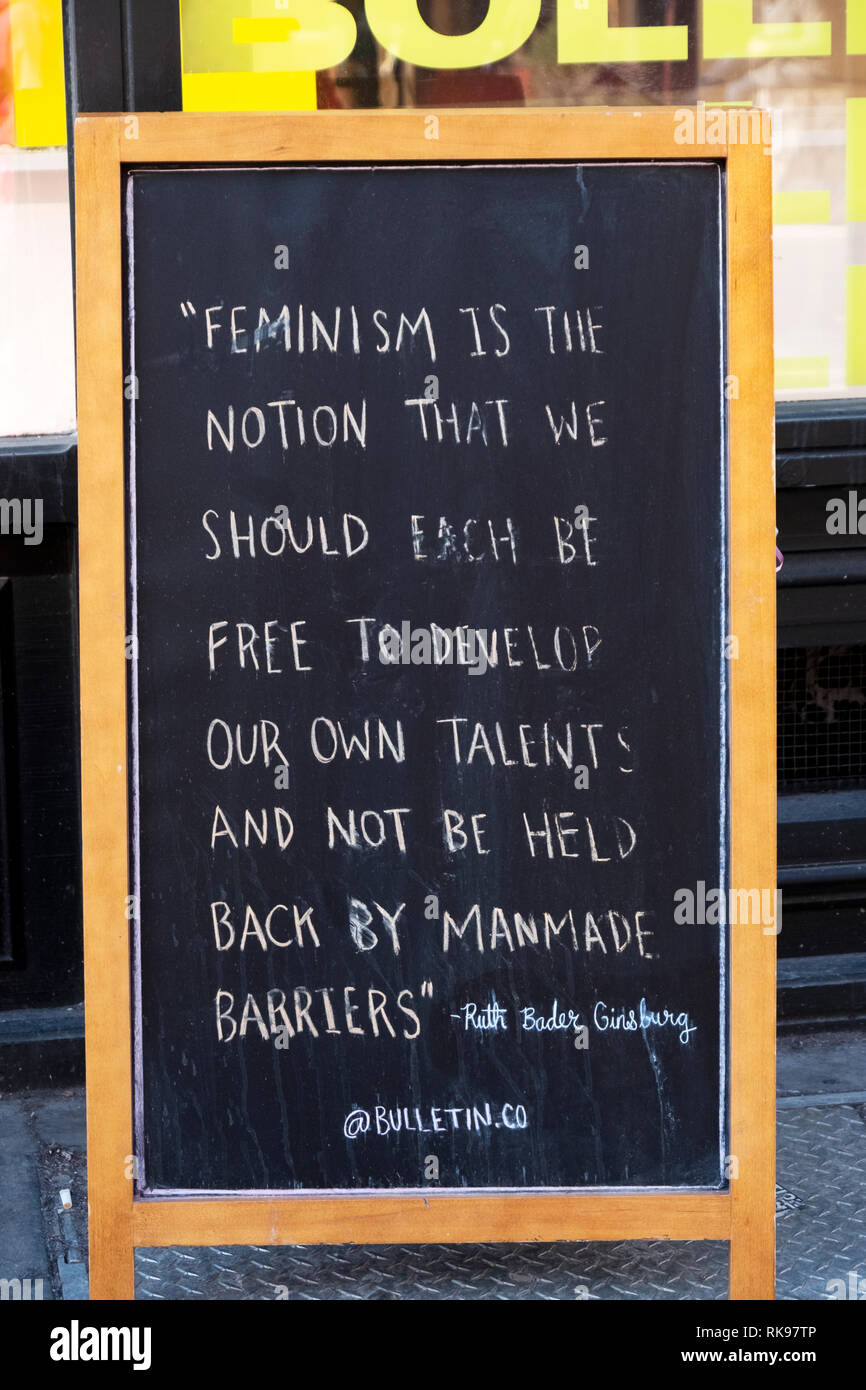 BULL
"FEMINISM IS THE
NOTION THAT WE
SHOULD EACH BE
FREE TO DEVELOP
OUR OWN TALENTS
AND NOT BE HELD
BACK BY MANMADE
BARRIERS" -Ruth Bader Ginsburg
@BULLETIN.CO
alamy
Image ID: RK97TP
www.alamy.com